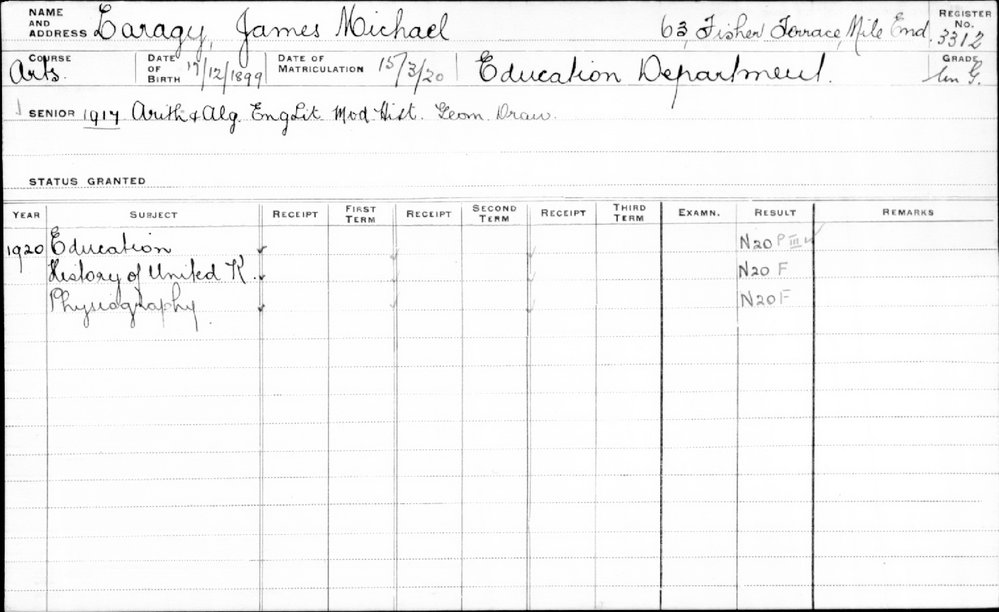 NAME AND ADDRESS Laragy, James Michael 63, Fisher Terrace, Mile End. REGISTER No. 3312
COURSE Arts. DATE OF BIRTH 17/12/1899 DATE OF MATRICULATION 15/3/20 Education Department. GRADE Un G.
SENIOR 1917 Arith & Alg. Eng Lit Mod. Hist. Geom. Draw.
STATUS GRANTED
YEAR SUBJECT RECEIPT FIRST TERM RECEIPT SECOND TERM RECEIPT THIRD TERM EXAMN. RESULT REMARKS
1920 Education ✓ ✓ ✓ N20 P III ✓
History of United K. ✓ ✓ ✓ N20 F
Physiography ✓ ✓ ✓ N20 F